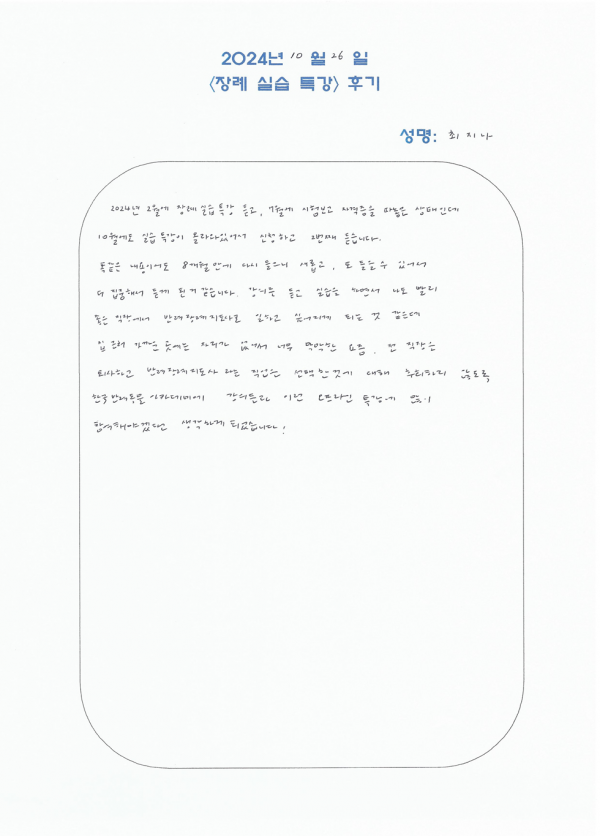 2024년 10 월 26 일
<장례 실습 특강> 후기
성명: 최지나
2024년 2월에 장례 실습 특강 듣고, 7월에 시험보고 자격증을 따놓은 상태인데
10월에도 실습 특강이 올라와있어서 신청하고 2번째 듣습니다.
똑같은 내용이어도 8개월 만에 다시 들으니 새롭고, 또 들을 수 있어서
더 집중해서 듣게 된 거 같습니다. 강의를 듣고 실습을 하면서 나도 빨리
좋은 직장에서 반려장례지도사로 일하고 싶어지게 되는 것 같은데
일단 가까운 곳에는 자리가 없어서 너무 막막한 요즘, 전 직장은
퇴사하고 반려장례지도사 라는 직업을 선택한것에 대해 후회하지 않도록
한국반려동물아카데미에 강의든지 이런 오프라인 특강에 많이
참여해야겠다는 생각하게 되었습니다!